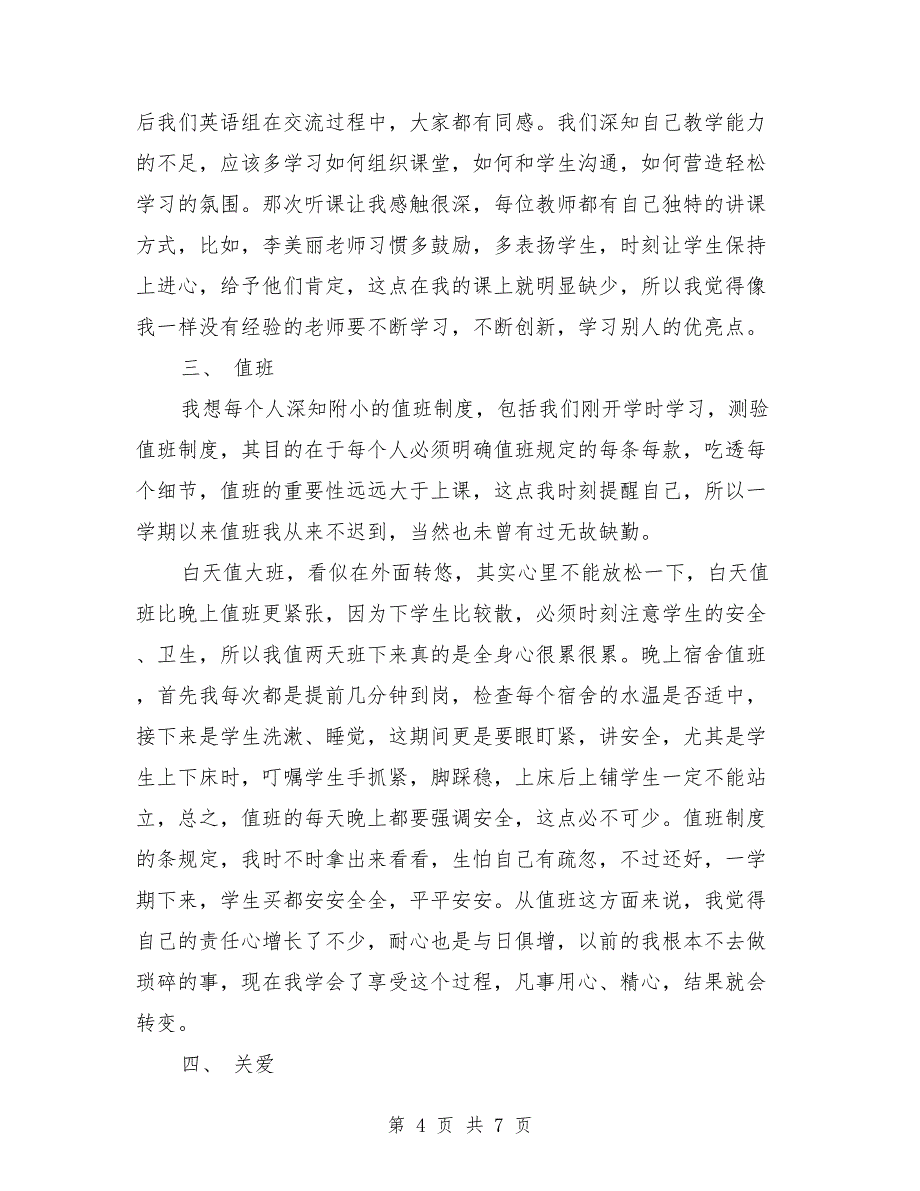 后我们英语组在交流过程中，大家都有同感。我们深知自己教学能力
的不足，应该多学习如何组织课堂，如何和学生沟通，如何营造轻松
学习的氛围。那次听课让我感触很深，每位教师都有自己独特的讲课
方式，比如，李美丽老师习惯多鼓励，多表扬学生，时刻让学生保持
上进心，给予他们肯定，这点在我的课上就明显缺少，所以我觉得像
我一样没有经验的老师要不断学习，不断创新，学习别人的优亮点。
三、 值班
我想每个人深知附小的值班制度，包括我们刚开学时学习，测验
值班制度，其目的在于每个人必须明确值班规定的每条每款，吃透每
个细节，值班的重要性远远大于上课，这点我时刻提醒自己，所以一
学期以来值班我从来不迟到，当然也未曾有过无故缺勤。
白天值大班，看似在外面转悠，其实心里不能放松一下，白天值
班比晚上值班更紧张，因为下学生比较散，必须时刻注意学生的安全
、卫生，所以我值两天班下来真的是全身心很累很累。晚上宿舍值班
，首先我每次都是提前几分钟到岗，检查每个宿舍的水温是否适中，
接下来是学生洗漱、睡觉，这期间更是要眼盯紧，讲安全，尤其是学
生上下床时，叮嘱学生手抓紧，脚踩稳，上床后上铺学生一定不能站
立，总之，值班的每天晚上都要强调安全，这点必不可少。值班制度
的条规定，我时不时拿出来看看，生怕自己有疏忽，不过还好，一学
期下来，学生买都安安全全，平平安安。从值班这方面来说，我觉得
自己的责任心增长了不少，耐心也是与日俱增，以前的我根本不去做
琐碎的事，现在我学会了享受这个过程，凡事用心、精心，结果就会
转变。
四、 关爱
第 4 页 共 7 页